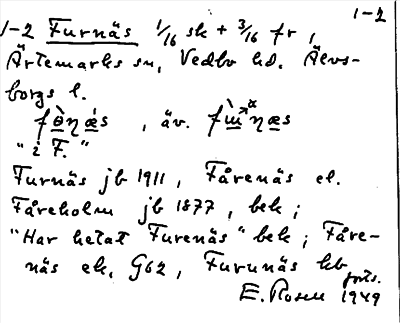 1-2
1-2 Furnäs 1/16 sk + 3/16 fr,
Ärtemarks sn, Vedbo hd. Älvs-
borgs l.
, äv.
"i F."
Furnäs jb 1911, Fårenäs el.
Fåreholm jb 1877, bek;
"Har hetat Furenäs" bek; Fåre-
näs ek. G62, Furunäs hb
forts.
E. Rosell 1949